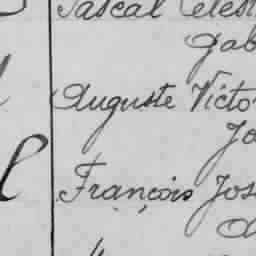 Pascal Célest
Gab
Auguste Victo
Jo
François Jos